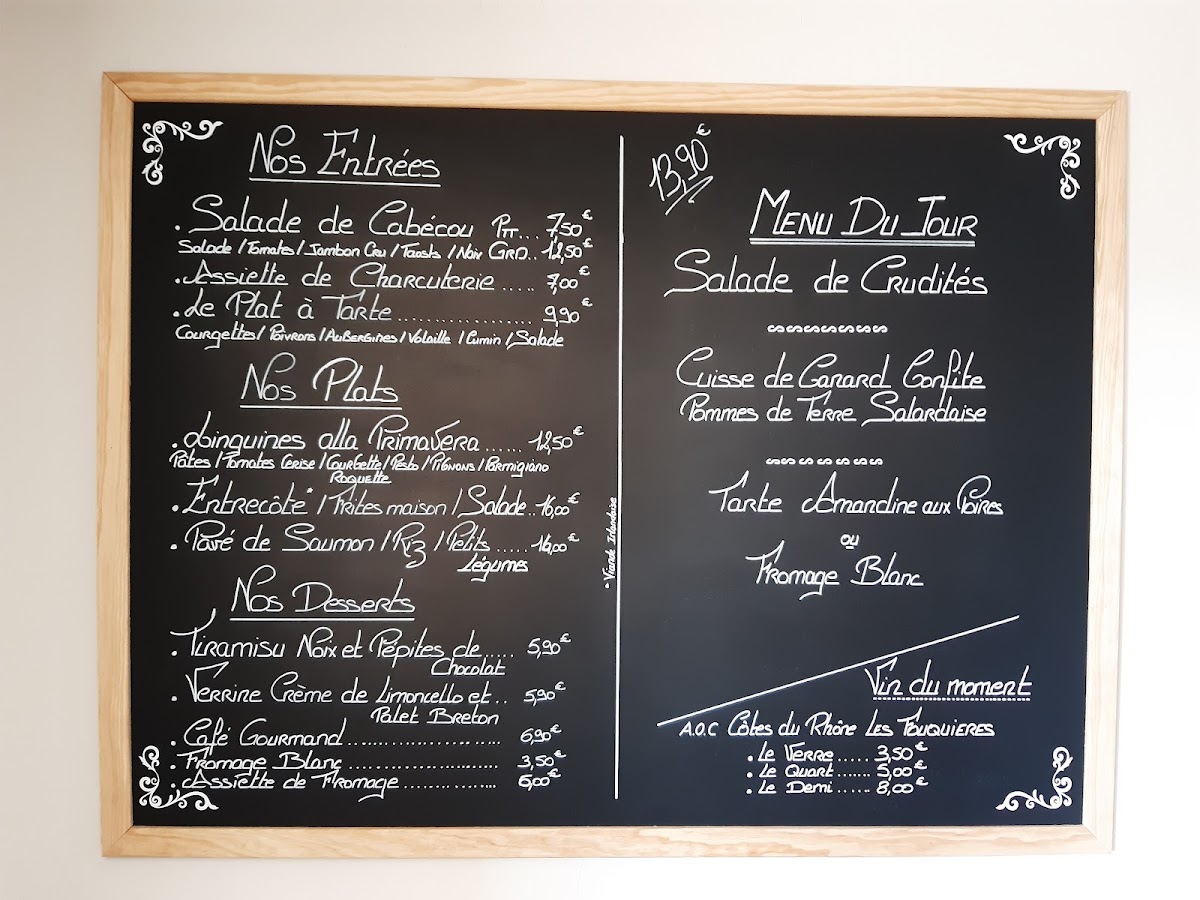 Nos Entrées
. Salade de Cabécou Ptt... 7,50€
Salade / Tomates / Jambon Cru / Toasts / Noix Grd.. 12,50€
. Assiette de Charcuterie ..... 7,00€
. Le Plat à Tarte .................. 9,90€
Courgettes / Poivrons / Aubergines / Volaille / Cumin / Salade
Nos Plats
. Linguines alla Primavera ...... 12,50€
Pâtes / Tomates Cerise / Courgette / Pesto / Pignons / Parmigiano
Roquette
. Entrecôte* / Frites maison / Salade .. 16,00€
. Pavé de Saumon / Riz / Petits ..... 16,00€
Légumes
* Viande Irlandaise
Nos Desserts
. Tiramisu Noix et Pépites de ..... 5,90€
Chocolat
. Verrine Crème de Limoncello et .. 5,90€
Palet Breton
. Café Gourmand ....................... 6,90€
. Fromage Blanc ....................... 3,50€
. Assiette de Fromage ............... 6,00€
13,90€
Menu Du Jour
Salade de Crudités
Cuisse de Canard Confite
Pommes de Terre Salardaise
Tarte Amandine aux Poires
ou
Fromage Blanc
Vin du moment
A.O.C Côtes du Rhône Les Fouquieres
. Le Verre ..... 3,50€
. Le Quart ....... 5,00€
. Le Demi ..... 8,00€